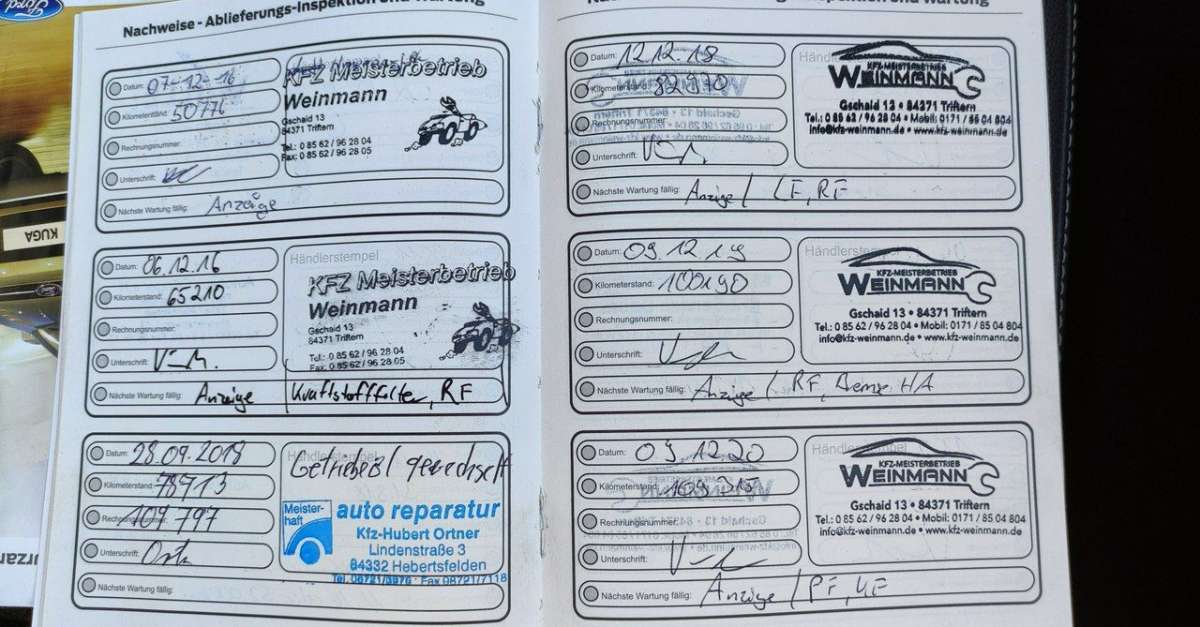 Ford
KUGA
Nachweise - Ablieferungs-Inspektion und Wartung
Datum: 07-12-16
Kilometerstand: 50776
Rechnungsnummer:
Unterschrift:
Nächste Wartung fällig: Anzeige
KFZ Meisterbetrieb
Weinmann
Gschaid 13
84371 Triftern
Tel.: 0 85 62 / 96 28 04
Fax: 0 85 62 / 96 28 05
Datum: 06.12.16
Kilometerstand: 65210
Rechnungsnummer:
Unterschrift:
Nächste Wartung fällig: Anzeige / Kraftstofffilter, RF
Händlerstempel
KFZ Meisterbetrieb
Weinmann
Gschaid 13
84371 Triftern
Tel.: 0 85 62 / 96 28 04
Fax: 0 85 62 / 96 28 05
Datum: 28.09.2018
Kilometerstand: 78913
Rechnungsnummer: 109797
Unterschrift:
Nächste Wartung fällig:
Getriebeöl gewechselt
Meister-
haft
auto reparatur
Kfz-Hubert Ortner
Lindenstraße 3
84332 Hebertsfelden
Tel. 08721/3976 · Fax 08721/7118
Datum: 12.12.18
Kilometerstand: 82970
Rechnungsnummer:
Unterschrift:
Nächste Wartung fällig: Anzeige / LF, RF
KFZ-MEISTERBETRIEB
WEINMANN
Gschaid 13 • 84371 Triftern
Tel.: 0 85 62 / 96 28 04 • Mobil: 0171 / 85 04 804
info@kfz-weinmann.de • www.kfz-weinmann.de
Datum: 09.12.19
Kilometerstand: 100190
Rechnungsnummer:
Unterschrift:
Nächste Wartung fällig: Anzeige / RF, Bremse HA
Händlerstempel
KFZ-MEISTERBETRIEB
WEINMANN
Gschaid 13 • 84371 Triftern
Tel.: 0 85 62 / 96 28 04 • Mobil: 0171 / 85 04 804
info@kfz-weinmann.de • www.kfz-weinmann.de
Datum: 09.12.20
Kilometerstand:
Rechnungsnummer:
Unterschrift:
Nächste Wartung fällig: Anzeige / PF, KF
Händlerstempel
KFZ-MEISTERBETRIEB
WEINMANN
Gschaid 13 • 84371 Triftern
Tel.: 0 85 62 / 96 28 04 • Mobil: 0171 / 85 04 804
info@kfz-weinmann.de • www.kfz-weinmann.de